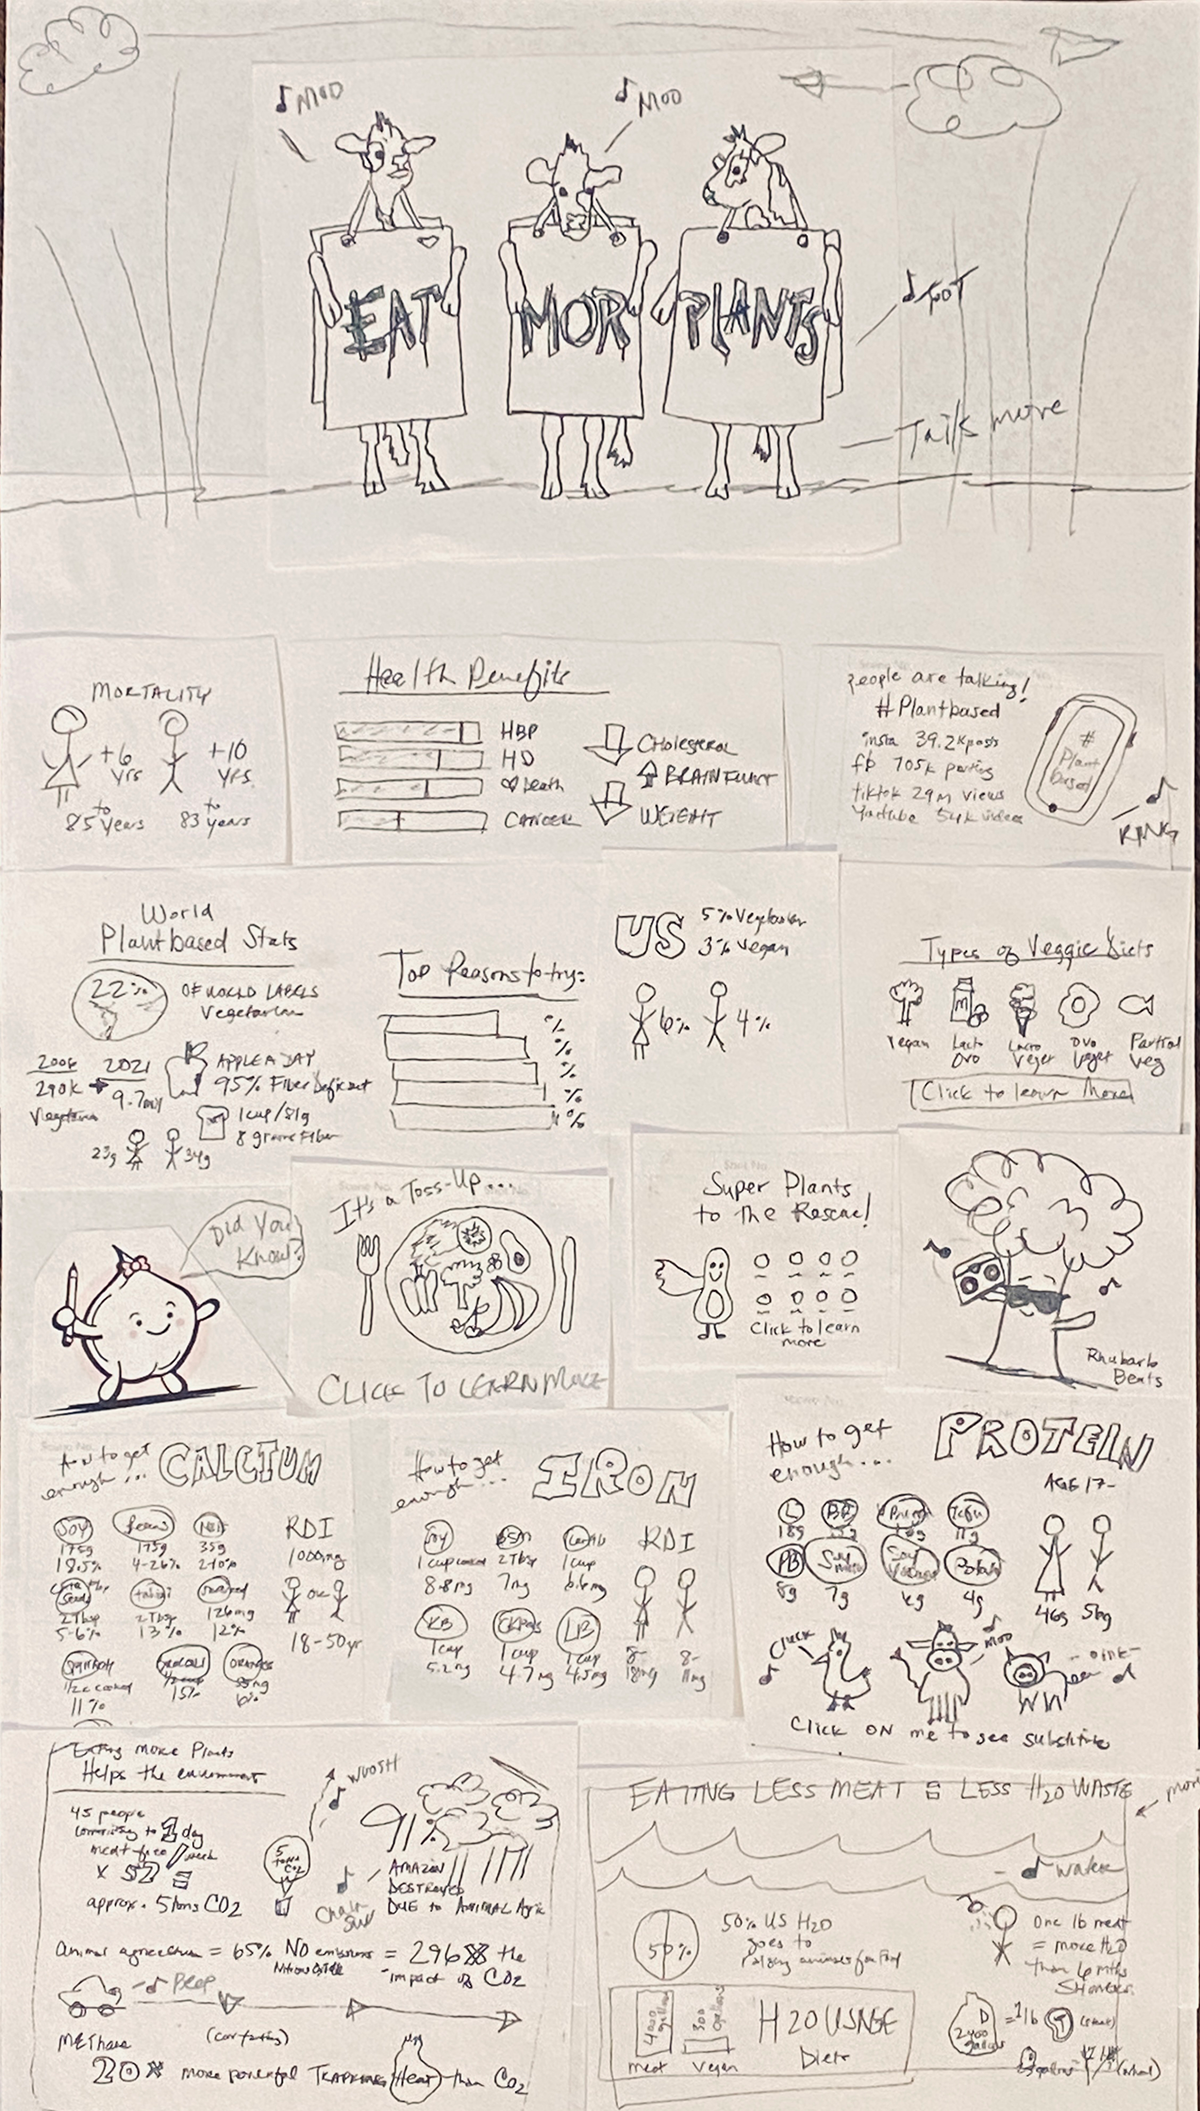 MOO
MOO
EAT
MOR
PLANTS
TOOT
Talk more
MORTALITY
+6 yrs
+10 yrs.
to
85 years
to
83 years
Health Benefits
HBP
HD
Death
CANCER
CHOLESTEROL
BRAIN FUNCT
WEIGHT
people are talking!
#Plantbased
insta 39.2k posts
fb 705k
tiktok 29M views
Youtube 54k videos
#
Plant
based
RING
World
Plantbased Stats
22%
OF WORLD LABELS
Vegetarian
2006
290K
Vegetarian
2021
9.7
APPLE A DAY
95% Fiber Deficient
1 cup/81g
8 grams Fiber
23g
34g
Top Reasons to try:
%
%
%
%
%
US
5% Vegetarian
3% Vegan
6%
4%
Types of Veggie Diets
Vegan
Lacto
Ovo
Lacto
Veget
Ovo
Veget
Partial
Veg
Click to learn more
Did You
Know?
It's a Toss-Up...
CLICK TO LEARN MORE
Super Plants
to The Rescue!
Click to learn
more
Rhubarb
Beats
How to get
enough...
CALCIUM
SOY
175g
18.5%
Beans
175g
4-26%
35g
RDI
1000mg
Seeds
2 Tbsp
5-6%
tahini
2 Tbsp
13%
126mg
12%
or
18-50yr
1/2c cooked
11%
BROCCOLI
15%
ORANGES
How to get
enough...
IRON
Soy
1 cup cooked
8.8mg
BSM
2 Tbsp
7mg
Lentils
1 cup
6.6mg
RDI
KB
1 cup
5.2mg
CKPeas
1 cup
4.7mg
LB
1 cup
4.5mg
8-
18mg
8-
11mg
How to get
enough...
PROTEIN
AGE 17-
L
18g
Tofu
11g
PB
8g
Soy
milk
7g
Soy
Yogurt
6g
Potato
4g
46g
56g
Cluck
MOO
-oink-
Click ON me to see substitute
Eating more Plants
Helps the environment
45 people
committing to 1 day
meat-free / week
X 52 =
approx. 5 tons CO2
WOOSH
5
tons
CO2
91%
AMAZON
DESTROYED
DUE to ANIMAL Agric
Chain
Saw
Animal agriculture = 65% NO emissions = 296X the
Nitrous Oxide
impact of CO2
BEEP
Methane
(car farting)
20X more powerful TRAPPING Heat than CO2
EATING LESS MEAT = LESS H2O WASTE
water
50%
50% US H2O
goes to
raising animals for food
One lb meat
= more H2O
than 6 mths
SHOWERS
4000
gallons
300
gallons
meat
Vegan
H2O USAGE
Diets
2400
gallons
= 1 lb
gallons
(wheat)